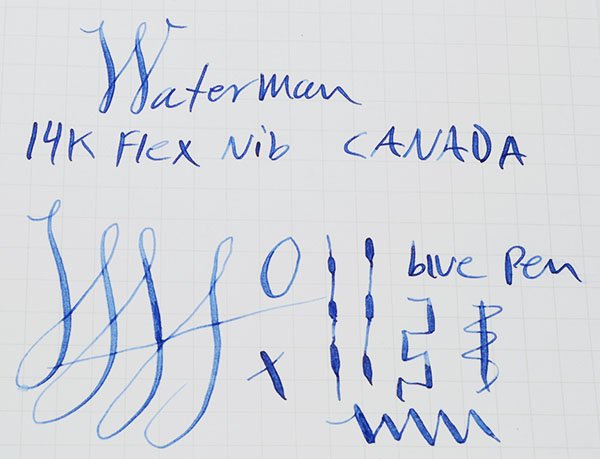 Waterman
14K Flex Nib CANADA
blue Pen